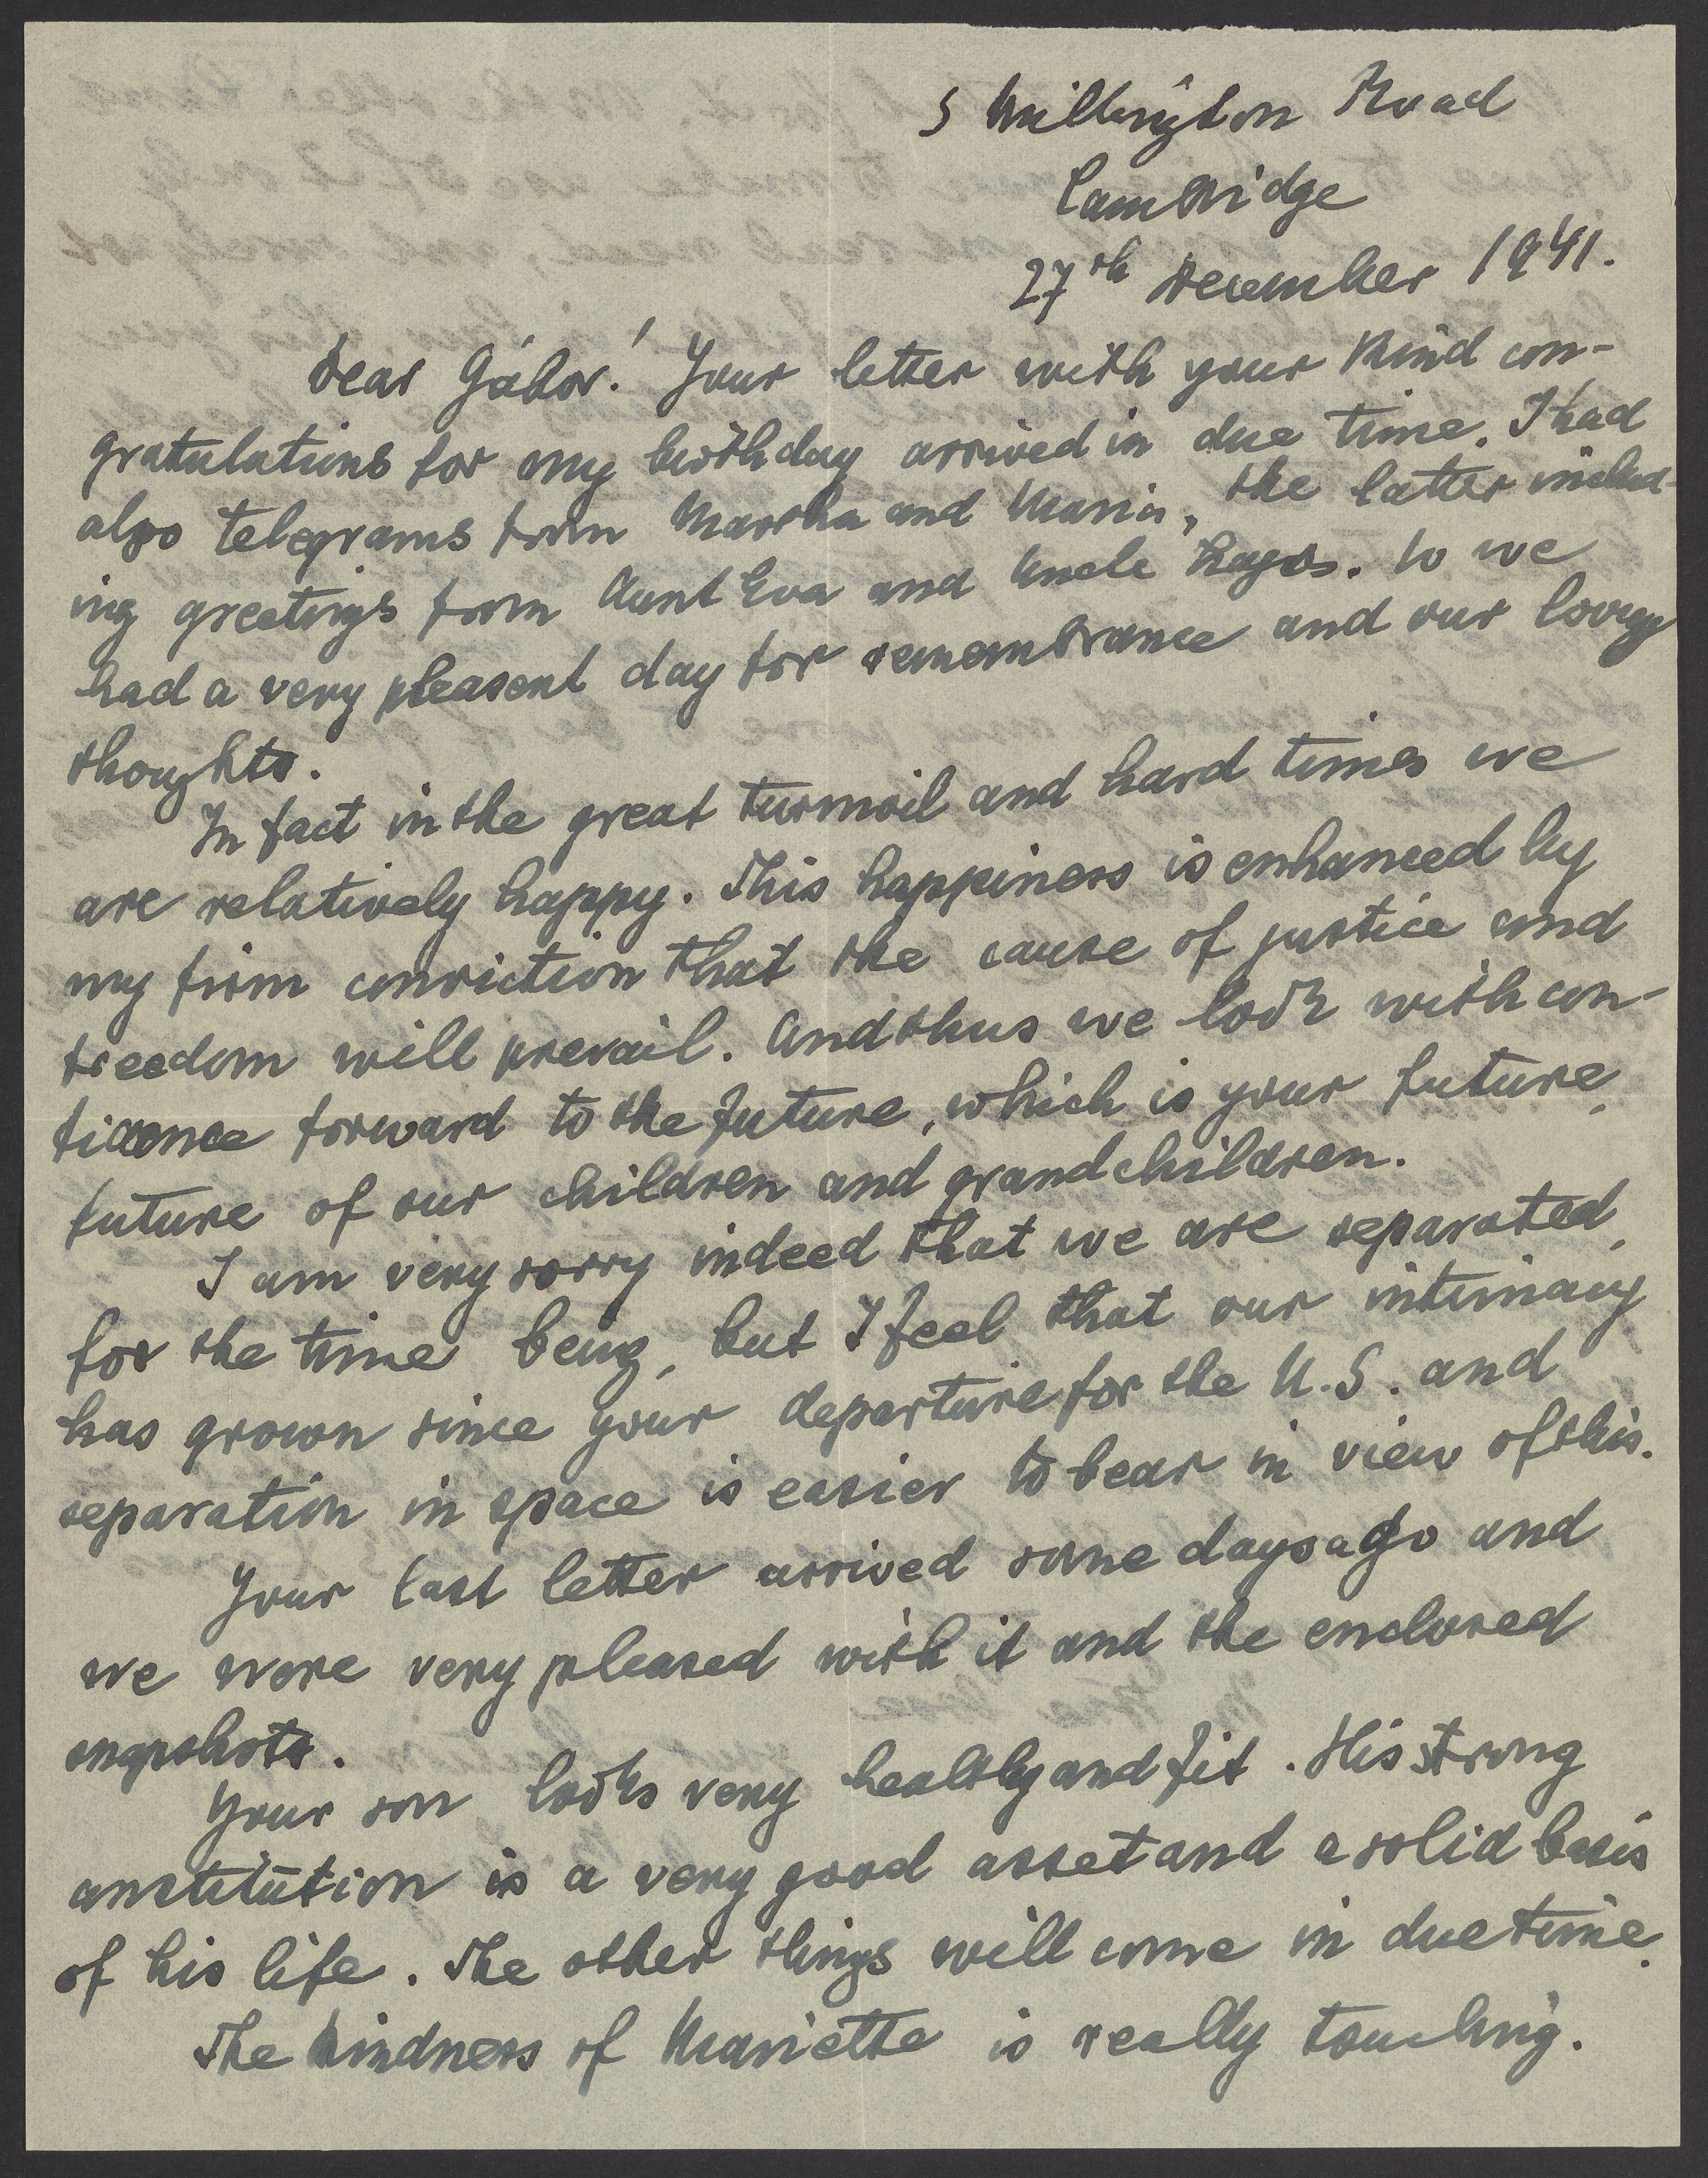 5 Millington Road
Cambridge
27th December 1941.
Dear Gábor! Your letter with your kind con-
gratulations for my birthday arrived in due time. I had
also telegrams from Martha and Maria, the latter includ-
ing greetings from Aunt Eva and Uncle Lajos. So we
had a very pleasent day for remembrance and our loving
thoughts.
In fact in the great turmoil and hard times we
are relatively happy. This happiness is enhanced by
my firm conviction that the cause of justice and
freedom will prevail. And thus we look with con-
fidence forward to the future, which is your future,
future of our children and grandchildren.
I am very sorry indeed that we are separated,
for the time being, but I feel that our intimacy
has grown since your departure for the U.S. and
separation in space is easier to bear in view of this.
Your last letter arrived some days ago and
we were very pleased with it and the enclosed
snapshots.
Your son looks very healthy and fit. His strong
constitution is a very good asset and a solid basis
of his life. The other things will come in due time.
The kindness of Mariette is really touching.